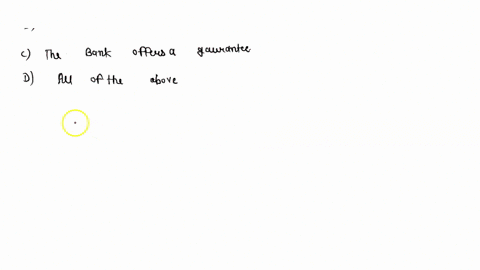 C) The Bank offers a gaurantee
D) All of the above